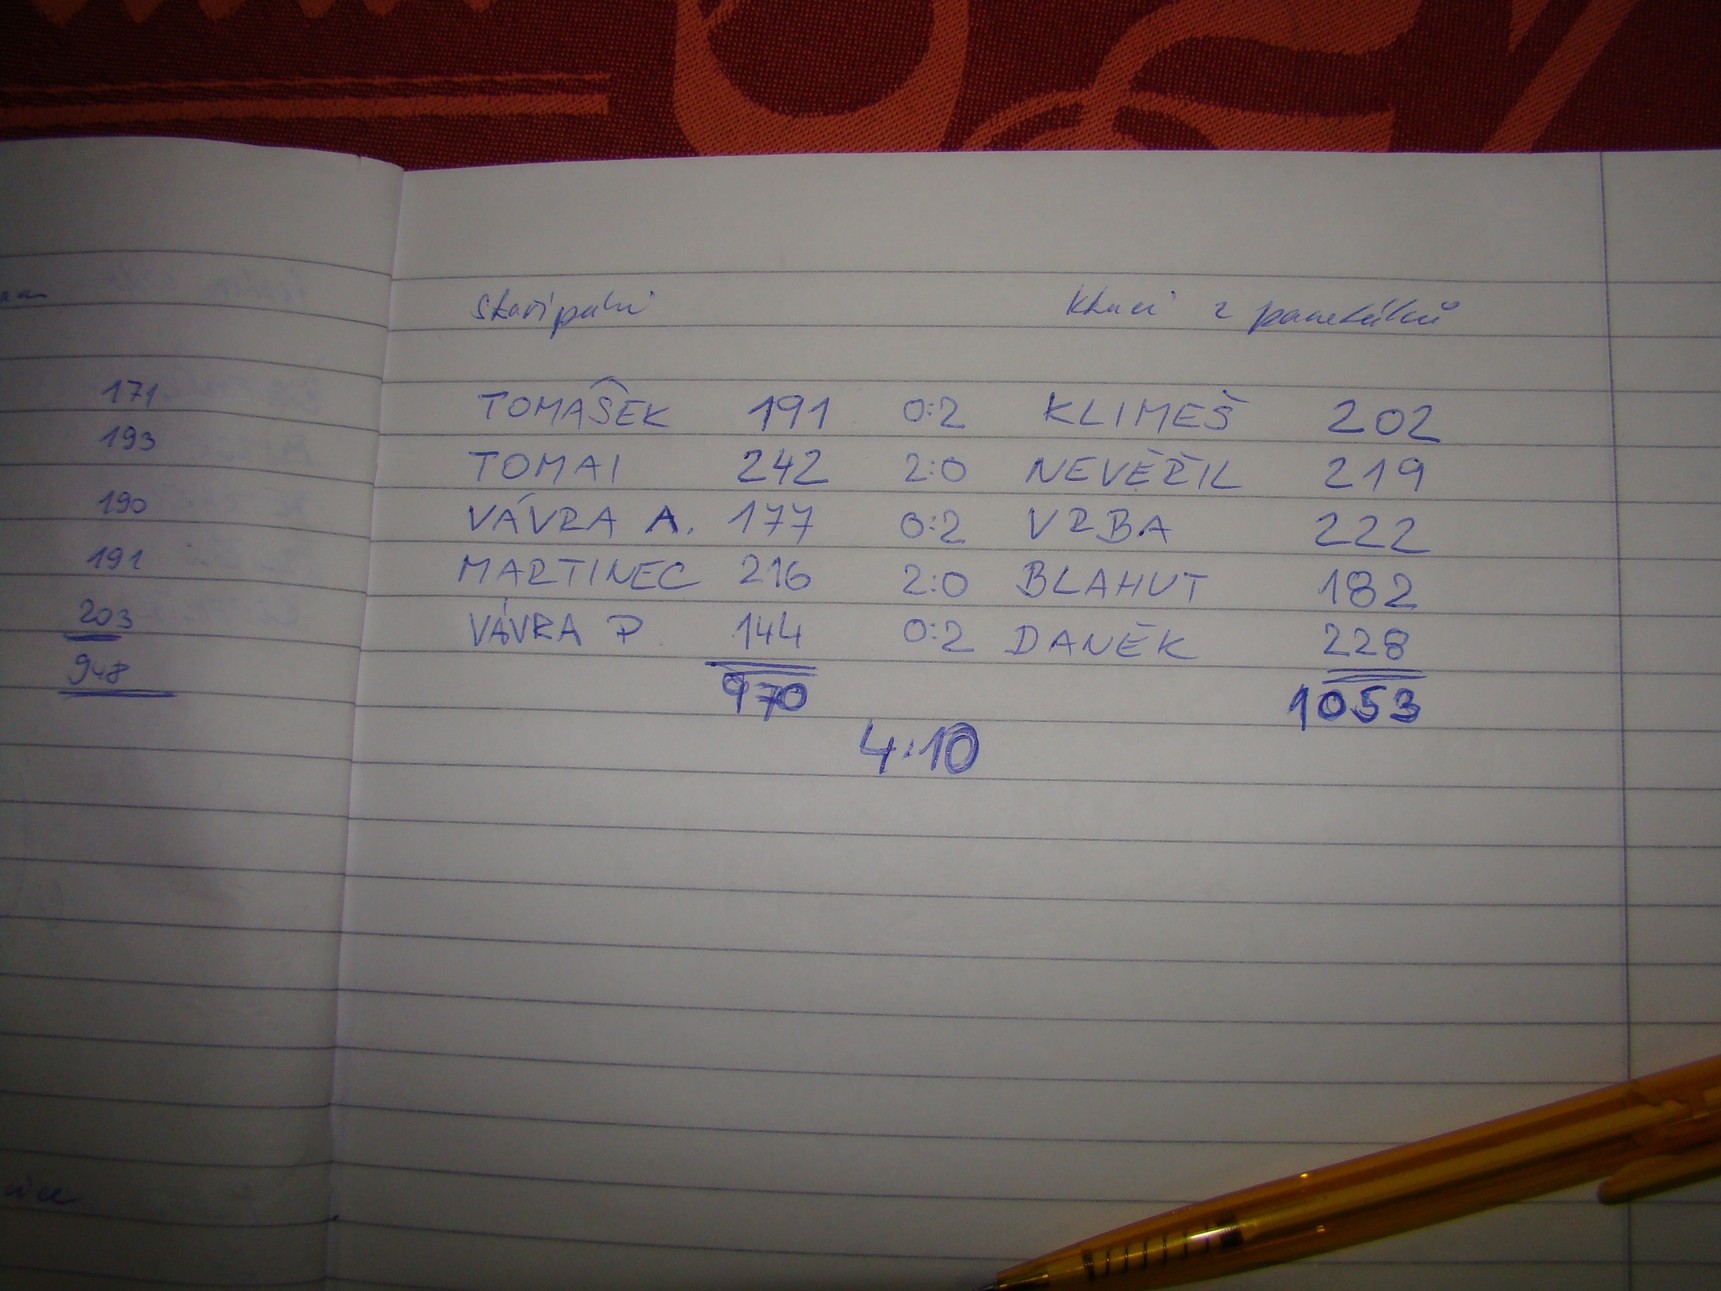 Staří páni Kluci z paneláků
171
TOMAŠEK 191 0:2 KLIMEŠ 202
193
TOMAI 242 2:0 NEVĚŘIL 219
190
VÁVRA A. 177 0:2 VRBA 222
191
MARTINEC 216 2:0 BLAHUT 182
203
VÁVRA P. 144 0:2 DANĚK 228
948
970 1053
4:10